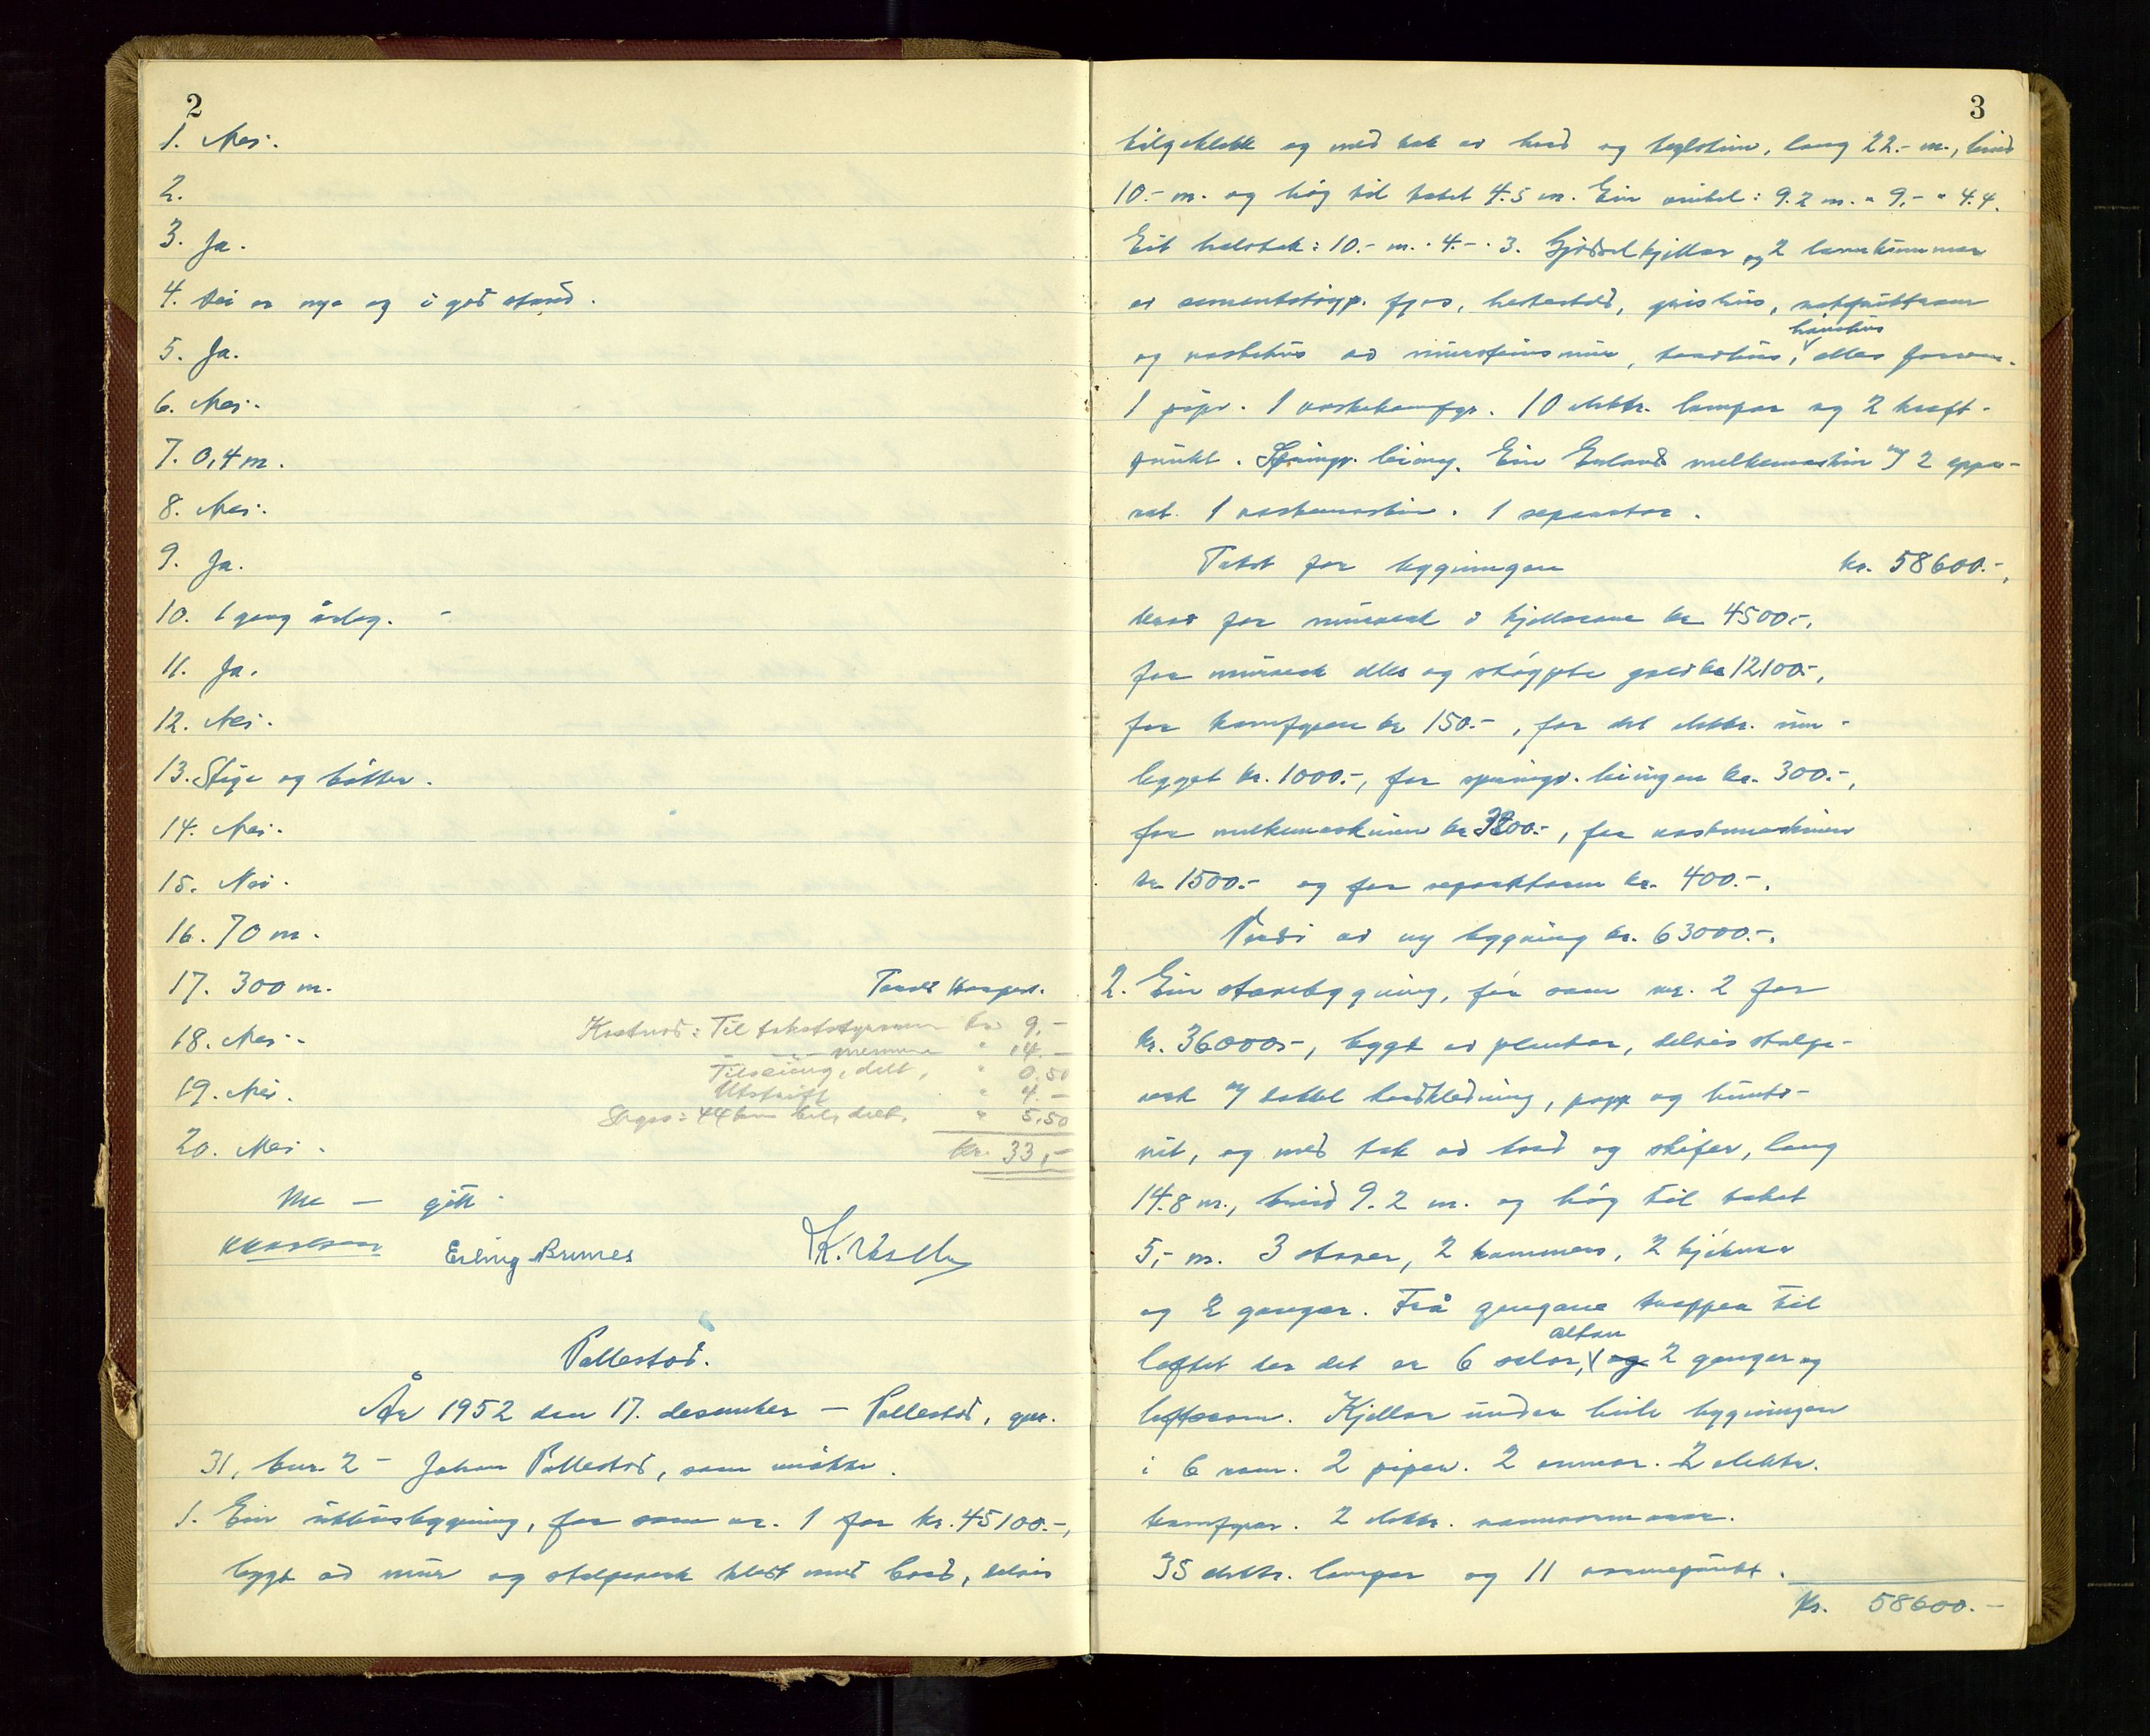 2
1. Nei.
2.
3. Ja.
4. Dei er nye og i god stand.
5. Ja.
6. Nei.
7. 0,4 m.
8. Nei.
9. Ja.
10. 1 gang årleg. -
11. Ja.
12. Nei.
13. Stige og bøtter.
14. Nei.
15. Nei.
16. 70 m.
17. 300 m.
18. Nei.
19. Nei.
20. Nei.
Kostnad: Til takststyraren kr 9,-
- " - mennene " 14.-
Tilseiing, delt, " 0.50
Utskrift " 4.-
Skyss: 44 km bil, delt, " 5,50
Kr. 33,-
Me — gitt.
Erling Brunes K.
Pallestad.
År 1952 den 17. desember — Pallestad, gnr.
31, bnr. 2 - Johan Pallestad, som møtte.
1. Ein uthusbygning, før som nr. 1 for kr. 45100.-,
bygt av mur og stolpeverk kledt med bord, delvis
3
og med tak av bord og teglstein, lang 22.- m., breid
10.- m. og høg til taket 4.5 m. Ein vinkel: 9.2 m. " 9,- " 4.4.
Eit halvtak: 10.- m. . 4.- . 3. Gjødselkjellar og 2 landkummar
av sementstøyp. fjøs, hestestad, grishus, rotfruktrom
og vaskehus av mursteinsmur, torvhus, hønehus elles forrom.
1 pipe. 1 vaskekomfyr. 10 elektr. lampar og 2 kraft-
punkt. Springv. leiing. Ein melkemaskin m/ 2 appa-
rat. 1 vaskemaskin. 1 separator.
Takst for bygningen kr. 58600.-,
derav for murverk i kjellarane kr 4500.-,
for murverk elles og støypte golv kr 12100.-,
for komfyren kr 150.-, for det elektr. inn-
legget kr. 1000.-, for springv. leiingen kr. 300.-,
for melkemaskinen kr , for vaskemaskinen
kr. 1500.- og for separatoren kr. 400.-.
Verdi av ny bygning kr. 63000.-.
2. Ein stovebygning, før som nr. 2 for
kr. 36000.-, bygt av plankar, delvis stolpe-
verk m/ dobbel bordkledning, papp og hunto-
nit, og med tak av bord og skifer, lang
14.8 m., breid 9.2 m. og høg til taket
5,- m. 3 stover, 2 kammers, 2 kjøkken
og 2 gangar. Frå gangane trapper til
loftet der det er 6 soverom, altan og 2 gangar og
loftsrom. Kjellar under heile bygningen
i 6 rom. 2 piper. 2 omnar. 2 elektr.
komfyrar. 2 elektr. vannvarmarar.
35 elektr. lampar og 11 varmepunkt.
Kr. 58600.-